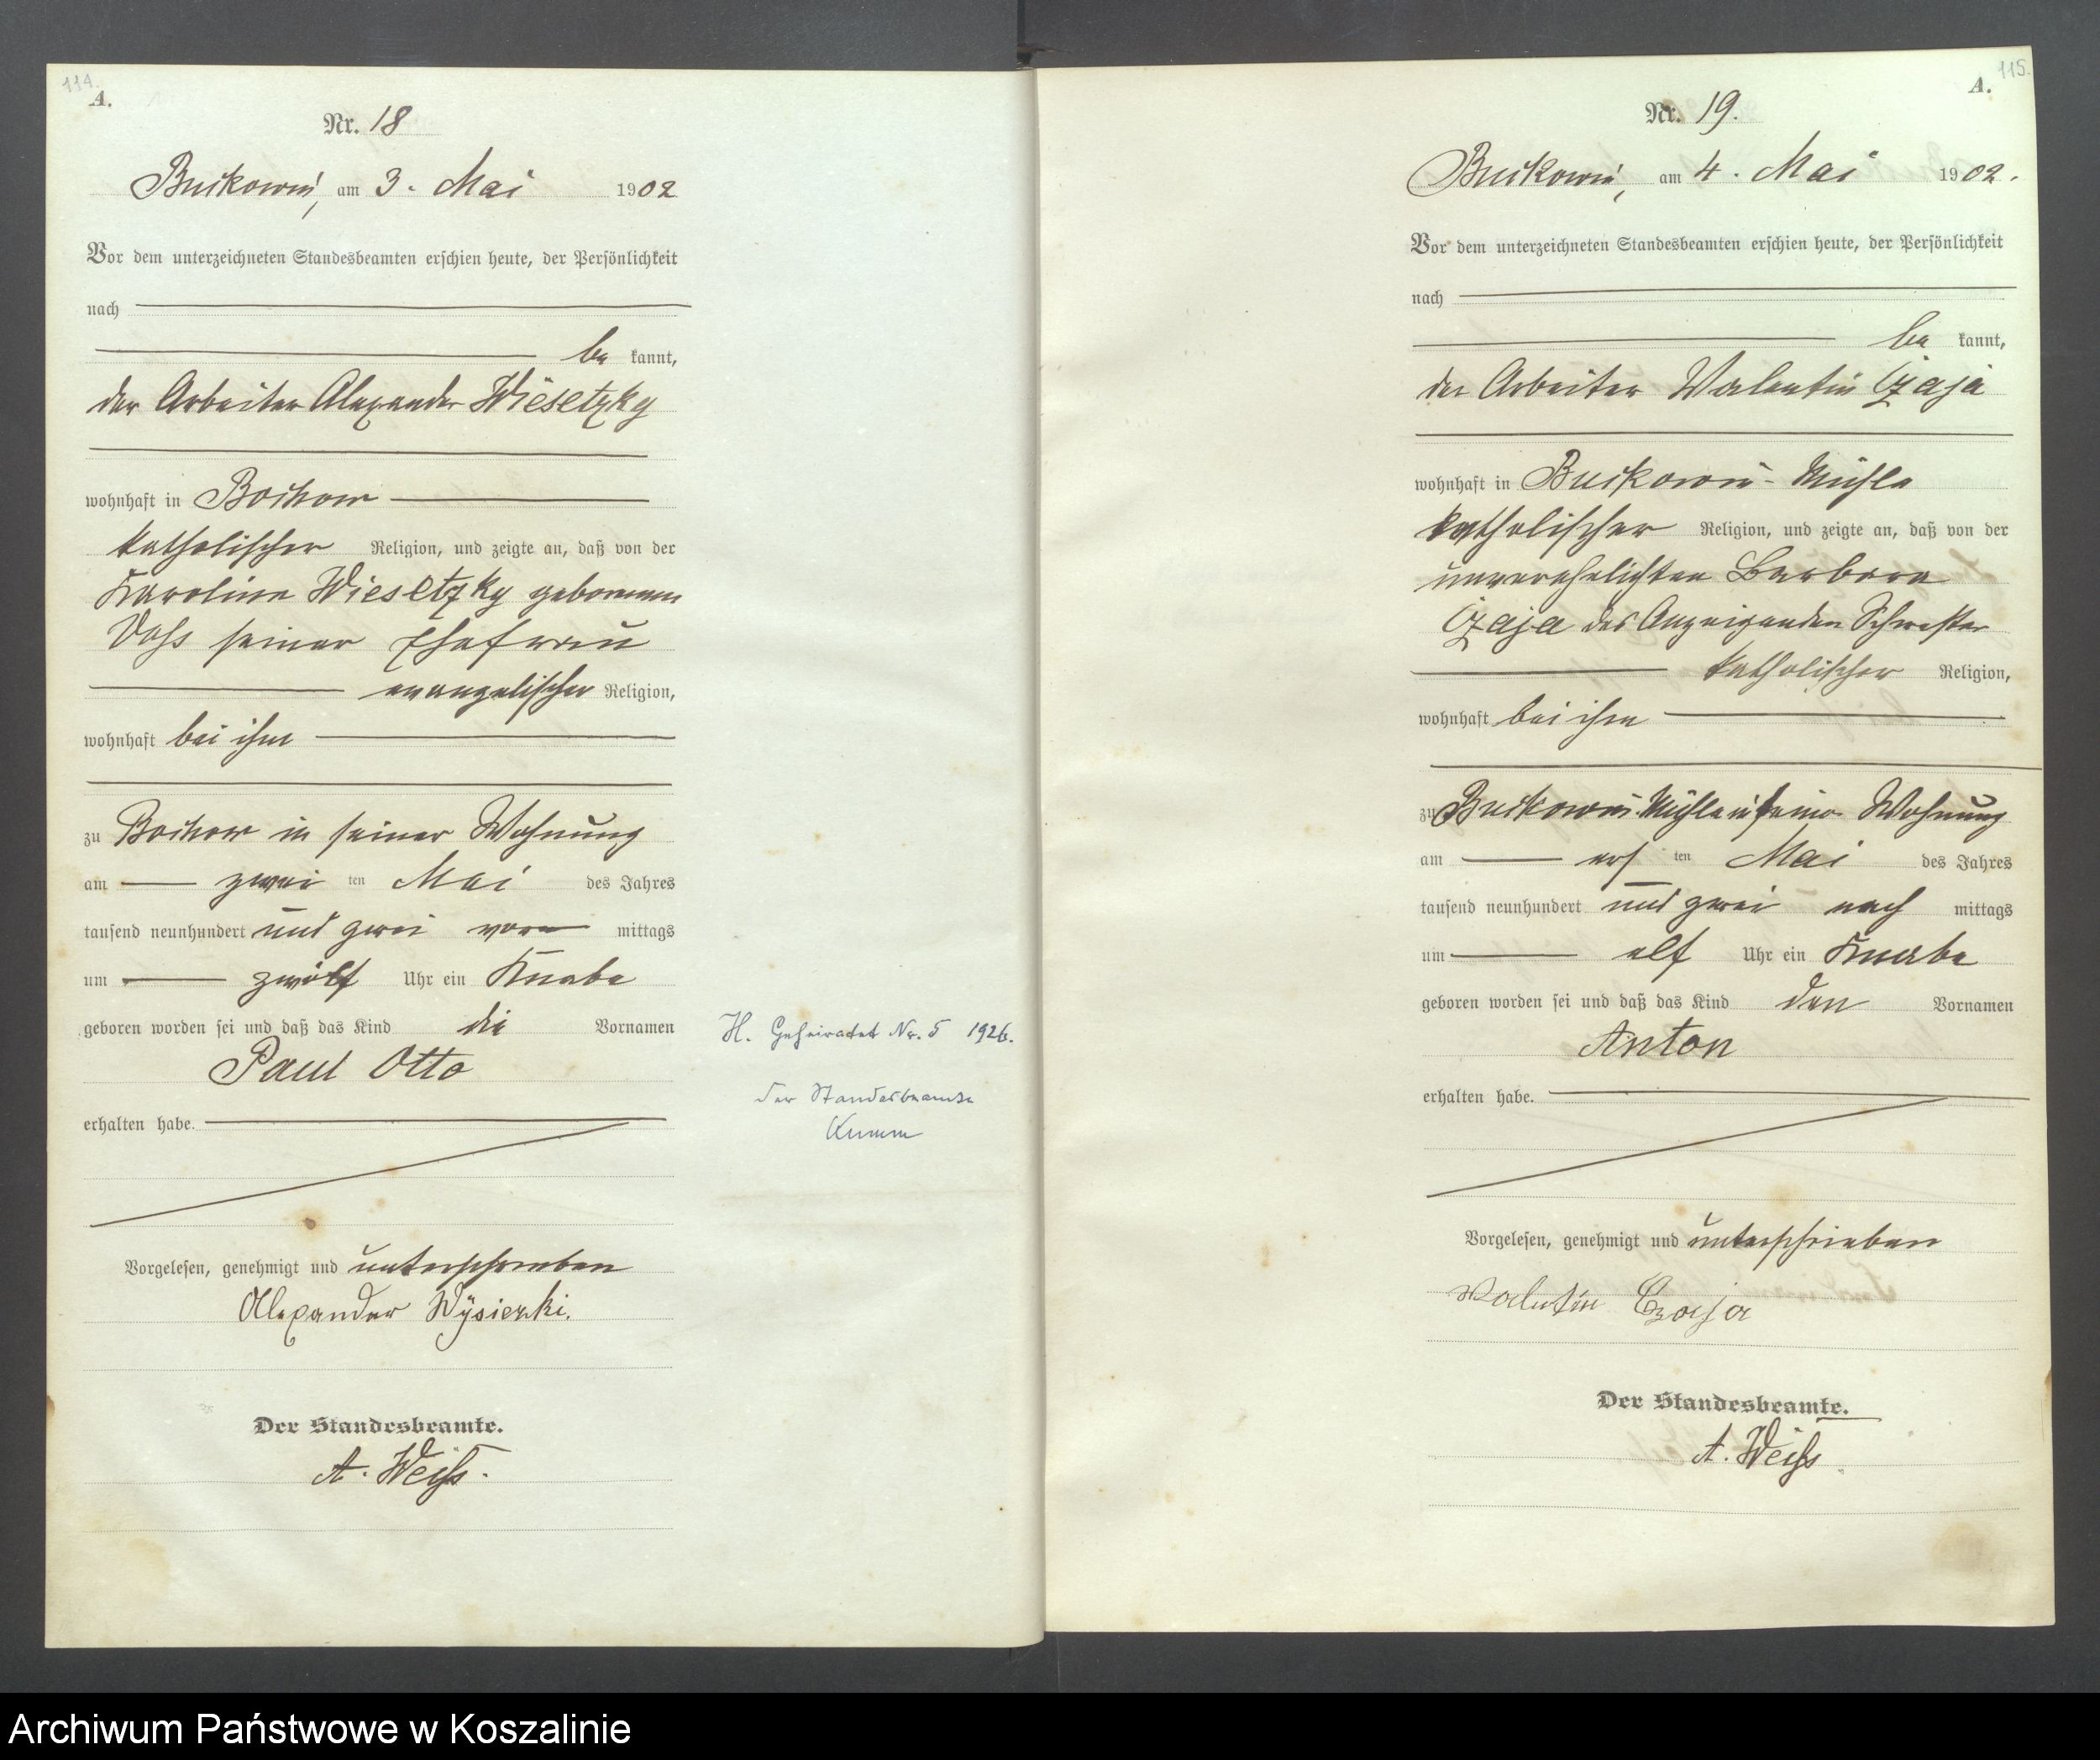 114.
A.
Nr. 18
Buckowin, am 3. Mai 1902
Vor dem unterzeichneten Standesbeamten erschien heute, der Persönlichkeit
nach
be kannt,
der Arbeiter Alexander Wiesetzky
wohnhaft in Bochow
katholischer Religion, und zeigte an, daß von der
Karoline Wiesetzky geborenen
Voss seiner Ehefrau
evangelischer Religion,
wohnhaft bei ihm
zu Bochow in seiner Wohnung
am zwei ten Mai des Jahres
tausend neunhundert und zwei vor mittags
um zwölf Uhr ein Knabe
geboren worden sei und daß das Kind die Vornamen
Paul Otto
erhalten habe.
Vorgelesen, genehmigt und unterschrieben
Alexander Wÿsiezki.
Der Standesbeamte.
A. Weiss.
H. Geheiratet Nr. 5 1926.
Der Standesbeamte
Kumm
115.
A.
Nr. 19.
Buckowin, am 4. Mai 1902.
Vor dem unterzeichneten Standesbeamten erschien heute, der Persönlichkeit
nach
be kannt,
der Arbeiter Valentin Czaja
wohnhaft in Buckowin-Mühle
katholischer Religion, und zeigte an, daß von der
unverehelichten Barbara
Czaja des Anzeigenden Schwester
katholischer Religion,
wohnhaft bei ihm
zu Buckowin-Mühle in seiner Wohnung
am ers ten Mai des Jahres
tausend neunhundert und zwei nach mittags
um elf Uhr ein Knabe
geboren worden sei und daß das Kind den Vornamen
Anton
erhalten habe.
Vorgelesen, genehmigt und unterschrieben
Valentin Czaja
Der Standesbeamte.
A. Weiss
Archiwum Państwowe w Koszalinie